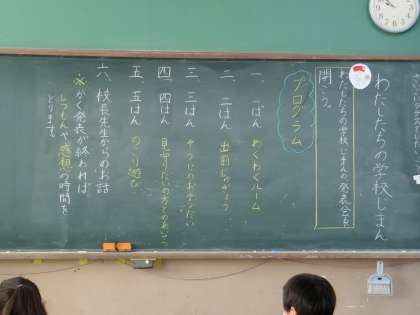 わたしたちの学校じまん
わたしたちの学校じまんの発表会を
開こう。
プログラム
一、一ぱん わくわくルーム
二、二はん 出前じゅぎょう
三、三ぱん
四、四はん 見守りたいの方とのあいさつ
五、五はん のこり遊び
六、校長先生からのお話
※かく発表が終われば
しつもんや感想の時間を
とります。